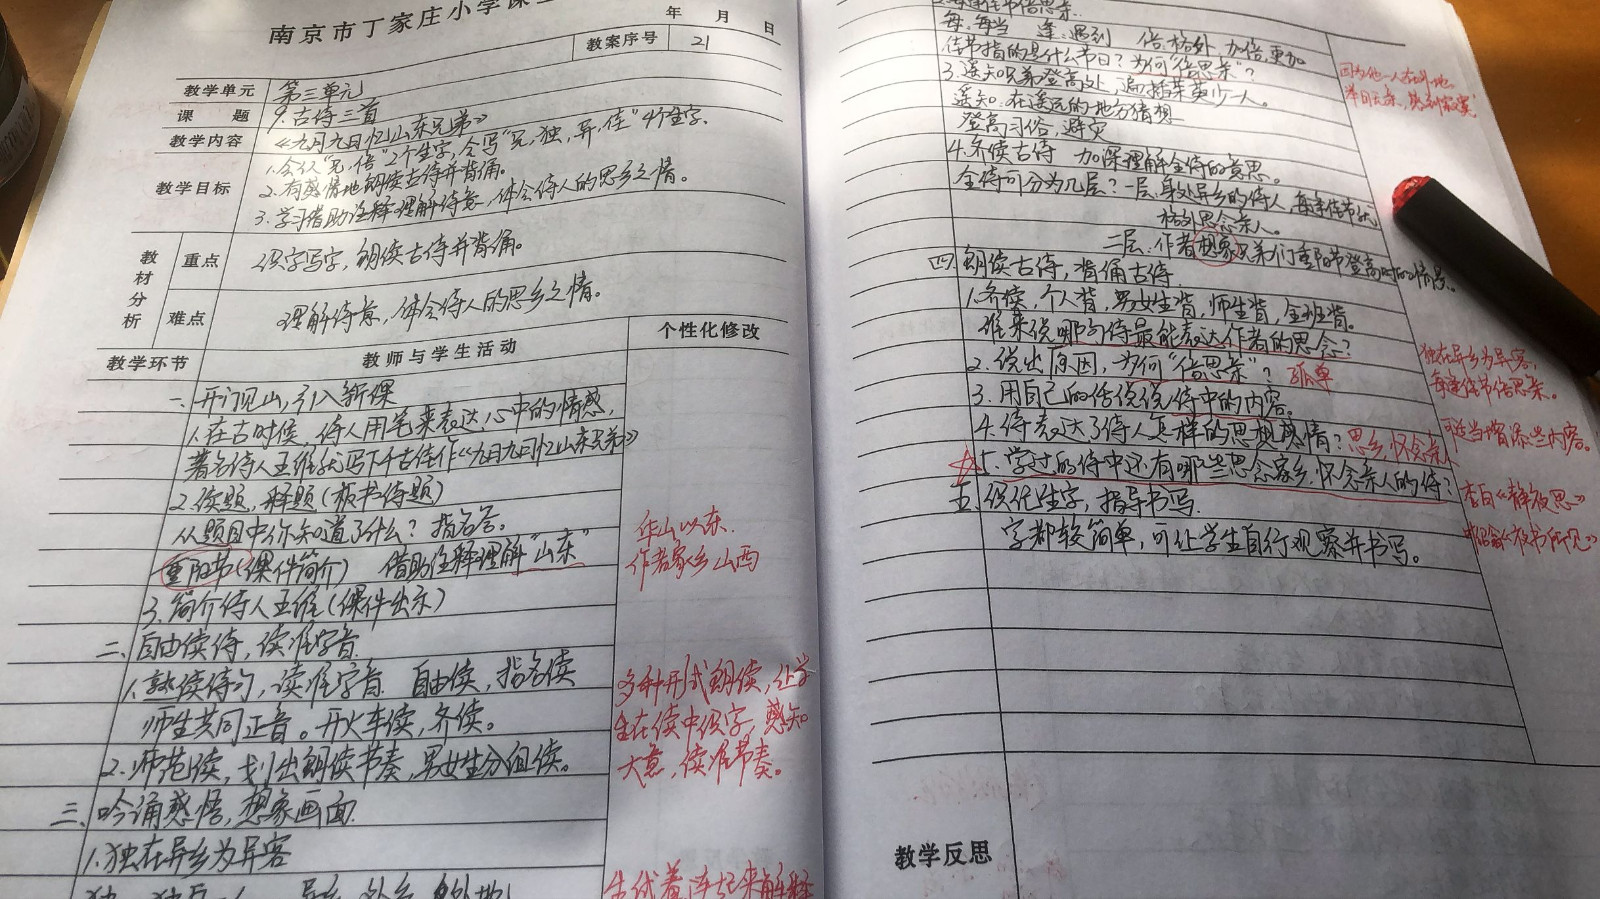 南京市丁家庄小学课
年 月 日
教案序号 21
教学单元 第三单元
课 题 9.古诗三首
教学内容 《九月九日忆山东兄弟》
教学目标 1.会认“兄,倍”2个生字,会写“兄,独,异,佳”4个生字。
2.有感情地朗读古诗并背诵。
3.学习借助注释理解诗意,体会诗人的思乡之情。
教材分析 重点 识字写字,朗读古诗并背诵。
难点 理解诗意,体会诗人的思乡之情。
教学环节 教师与学生活动 个性化修改
一、开门见山,引入新课
1.在古时候,诗人用笔来表达心中的情感,
著名诗人王维就写下千古佳作《九月九日忆山东兄弟》
2.读题,释题(板书诗题)
从题目中你知道了什么?指名答。
重阳节(课件简介) 借助注释理解“山东”
华山以东.
作者家乡山西
3.简介诗人王维(课件出示)
二、自由读诗,读准字音.
1.熟读诗句,读准字音 自由读,指名读
师生共同正音。开火车读,齐读。
2.师范读,划出朗读节奏,男女生分组读。
多种形式朗读,让学
生在读中识字,感知
大意,读准节奏。
三、吟诵感悟,想象画面.
1.独在异乡为异客
每逢佳节倍思亲.
每:每当 逢:遇到 倍:格外,加倍,更加
佳节指的是什么节日?为何“倍思亲”?
因为他一人在外地,
3.遥知兄弟登高处,遍插茱萸少一人。
遥知:在遥远的地方猜想
登高习俗,避灾
4.齐读古诗 加深理解全诗的意思。
全诗可分为几层?一层:身处异乡的诗人,每逢佳节就
格外思念亲人。
二层:作者想象兄弟们重阳节登高时的情景。
四、朗读古诗,背诵古诗.
1.齐读,个人背,男女生背,师生背,全班背。
谁来说哪句诗最能表达作者的思念?
独在异乡为异客,
每逢佳节倍思亲。
2.说出原因,为何“倍思亲”? 孤单
3.用自己的话说说诗中的内容。
4.诗表达了诗人怎样的思想感情?思乡,怀念亲人
可适当增添些内容。
☆5.学过的诗中还有哪些思念家乡,怀念亲人的诗?
李白《静夜思》
《夜书所见》
五、识记生字,指导书写.
字都较简单,可让学生自行观察并书写。
教学反思